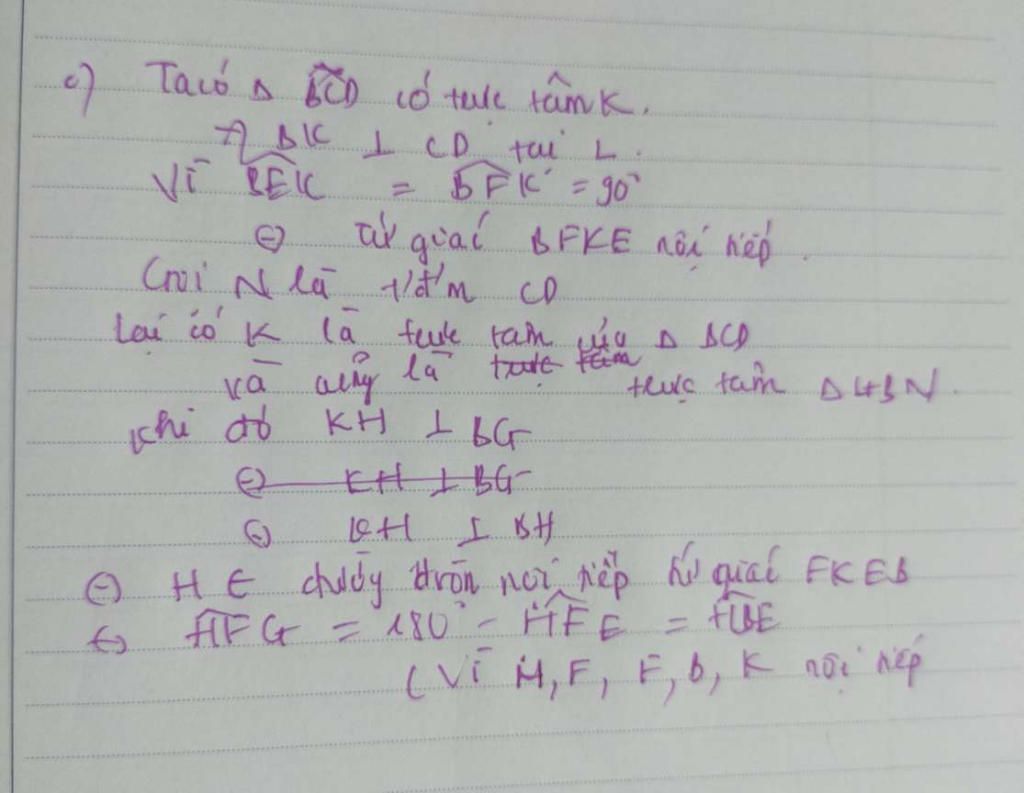 c) Ta có Δ BCD có trực tâm K.
=> BK ⊥ CD tại L.
Vì BEK = BFK = 90°
Tứ giác BFKE nội tiếp.
Gọi N là t/đ'm CD
Lại có K là trực tâm của Δ BCD
và cũng là trực tâm trực tâm Δ GBN.
Khi đó KH ⊥ BG
⇔ KH ⊥ BG
⇔ KH ⊥ BH
⇔ H ∈ đường tròn nội tiếp tứ giác FKEB
⇔ HFG = 180° - HFE = HBE
(Vì H, F, E, B, K nội tiếp